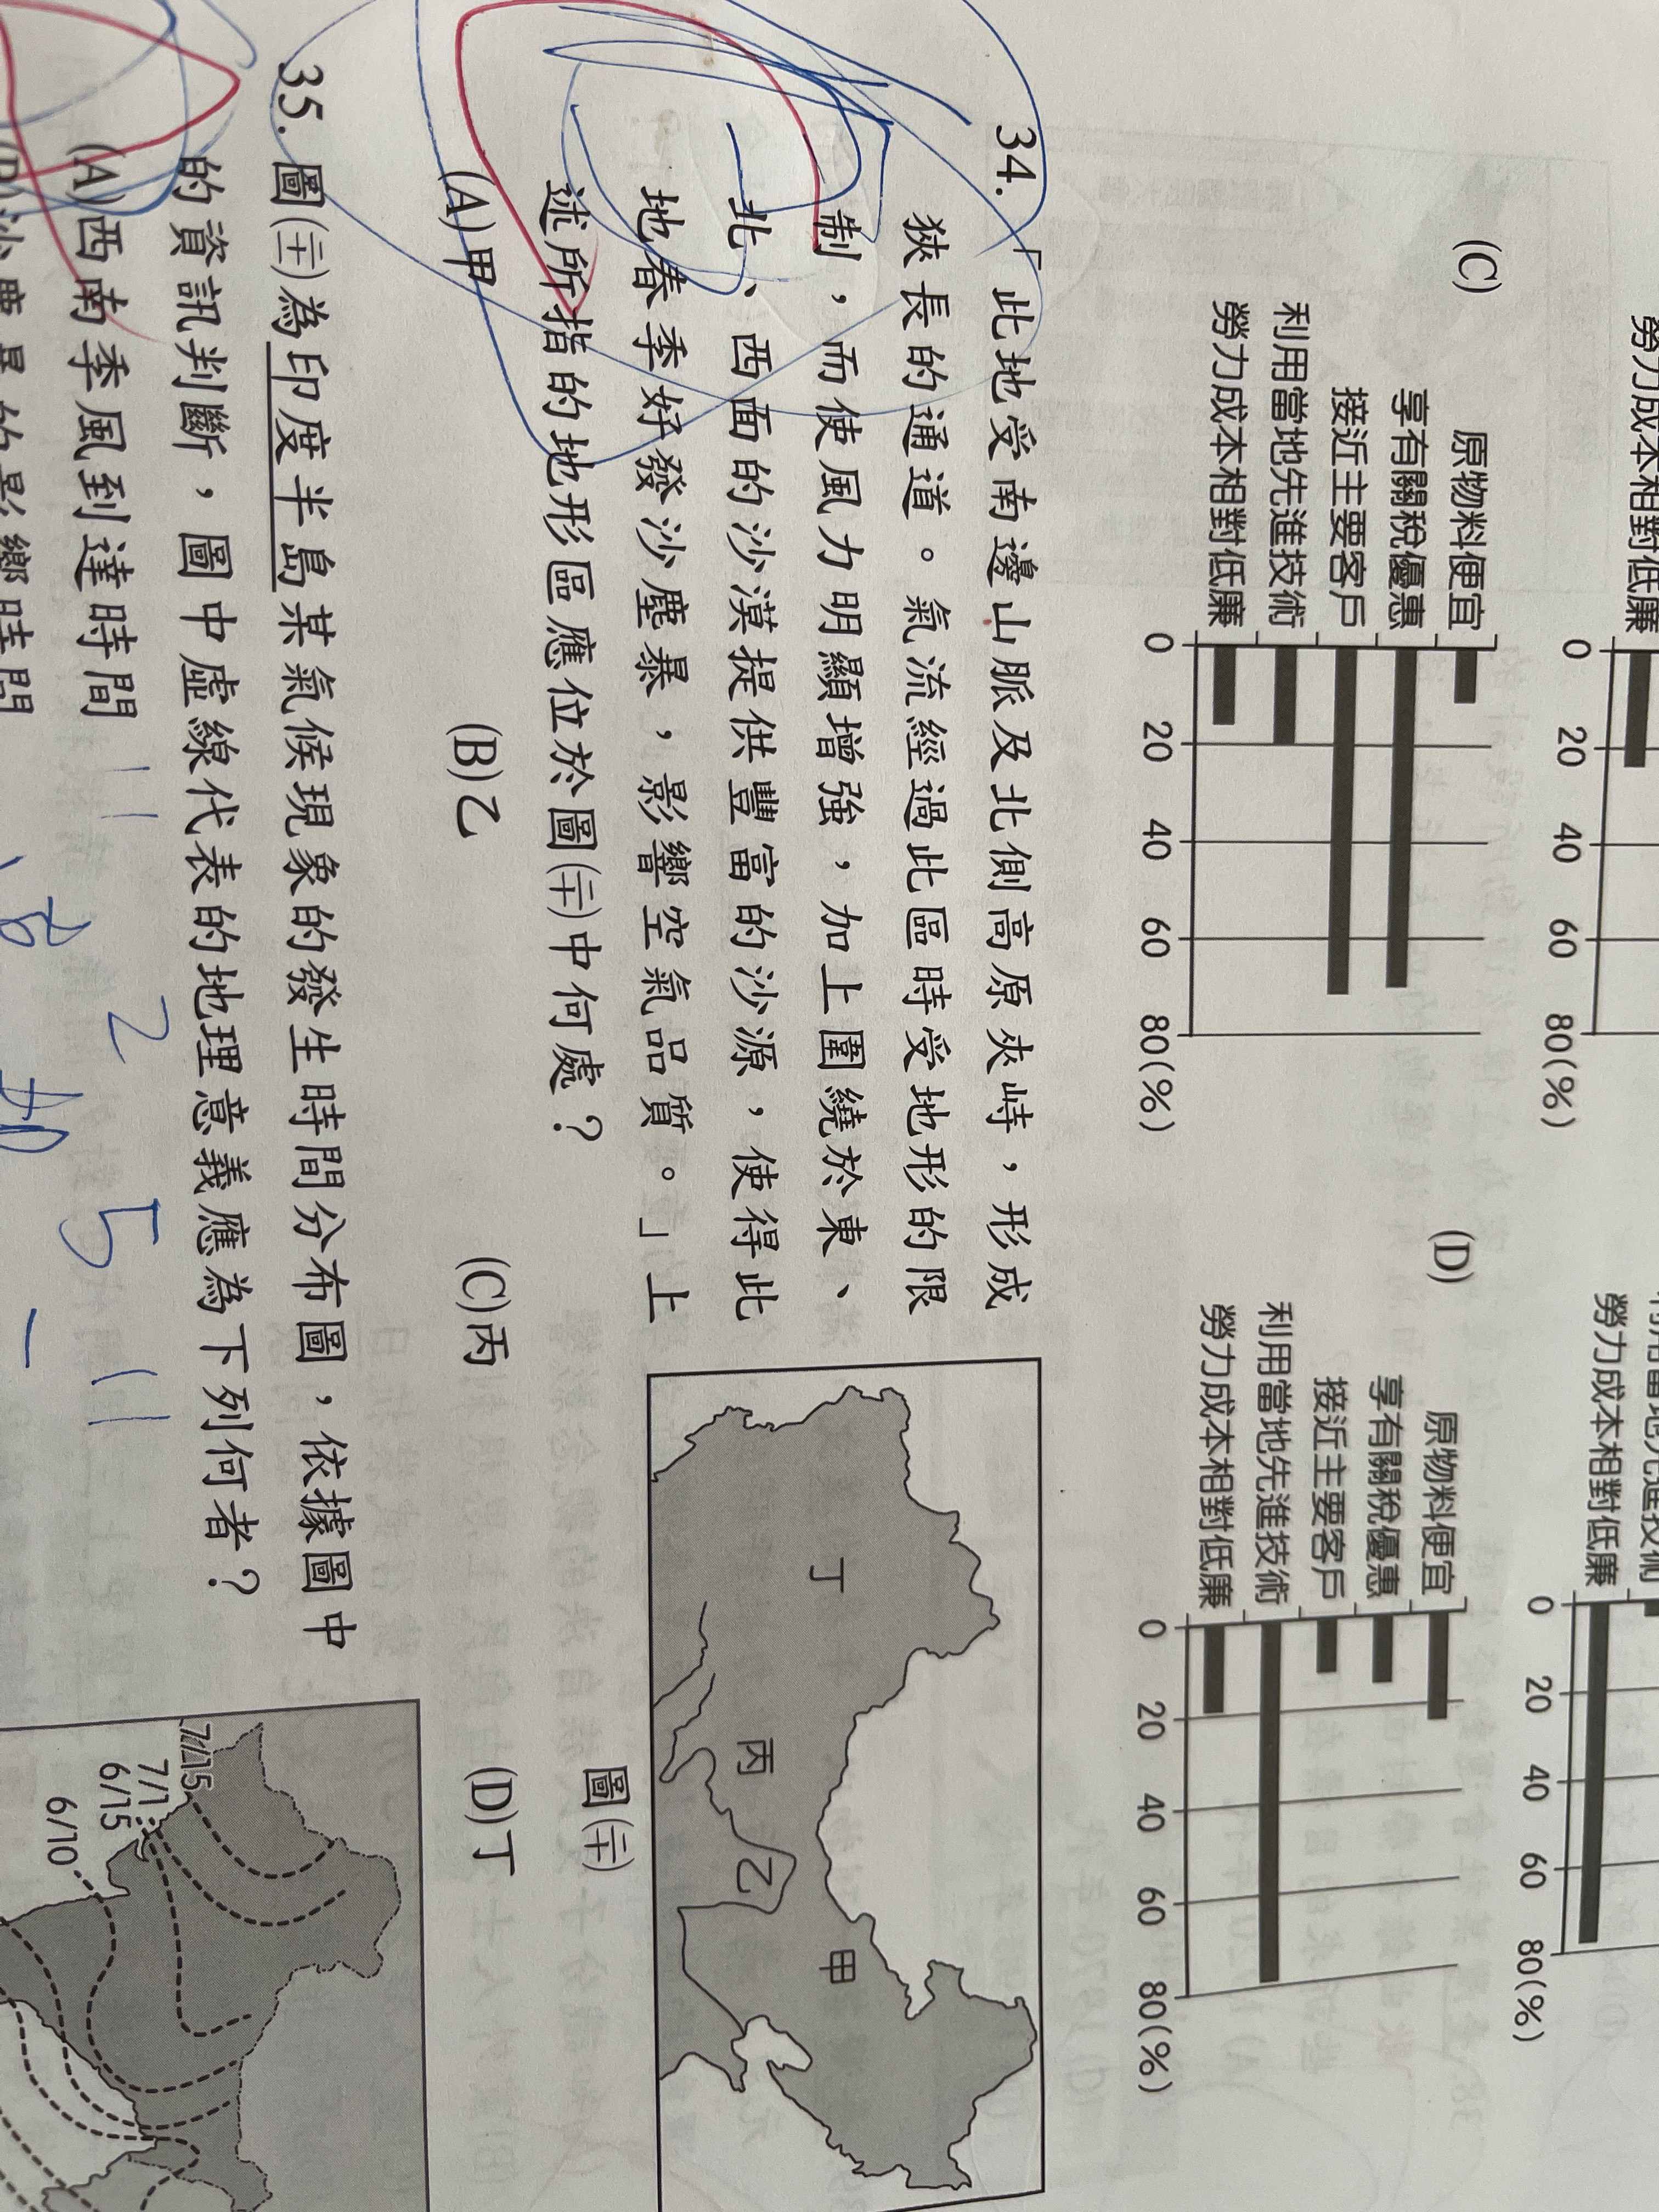 勞力成本相對低廉
0 20 40 60 80(%)
利用當地先進技術
勞力成本相對低廉
0 20 40 60 80(%)
(C)
原物料便宜
享有關稅優惠
接近主要客戶
利用當地先進技術
勞力成本相對低廉
0 20 40 60 80(%)
(D)
原物料便宜
享有關稅優惠
接近主要客戶
利用當地先進技術
勞力成本相對低廉
0 20 40 60 80(%)
34.「此地受南邊山脈及北側高原夾峙,形成
狹長的通道。氣流經過此區時受地形的限
制,而使風力明顯增強,加上圍繞於東、
北、西面的沙漠提供豐富的沙源,使得此
地春季好發沙塵暴,影響空氣品質。」上
述所指的地形區應位於圖(二十)中何處?
(A)甲 (B)乙 (C)丙 (D)丁
丁
丙
乙
甲
圖(二十)
35. 圖(二十一)為印度半島某氣候現象的發生時間分布圖,依據圖中
的資訊判斷,圖中虛線代表的地理意義應為下列何者?
(A)西南季風到達時間
(B)沙塵暴的影響時間
7/15
7/1
6/15
6/10
2 5